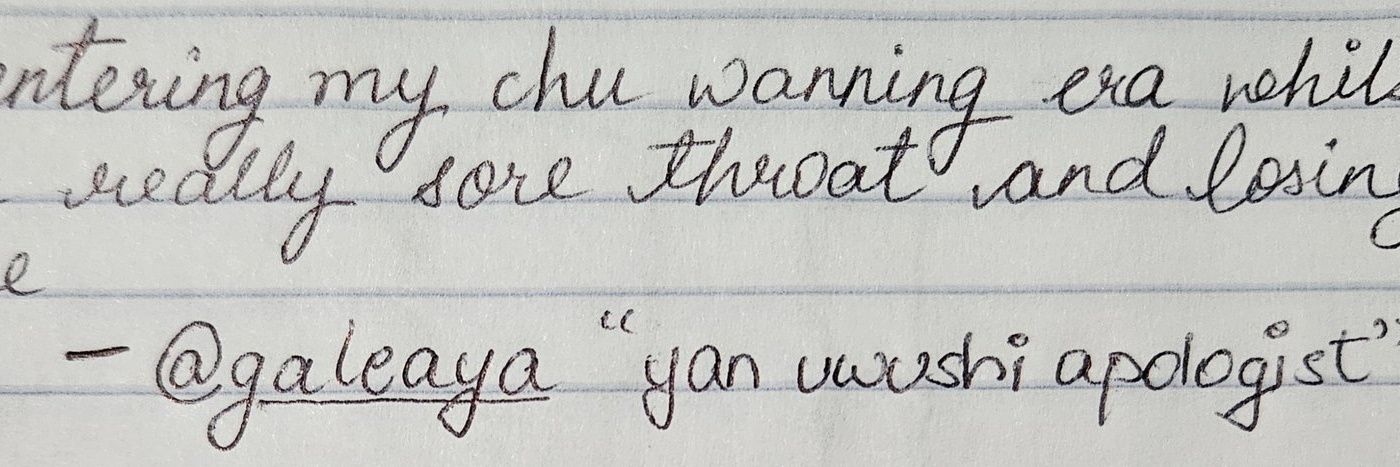 entering my chu wanning era whils
really sore throat and losing
e
- @galeaya "yan uwushi apologist"